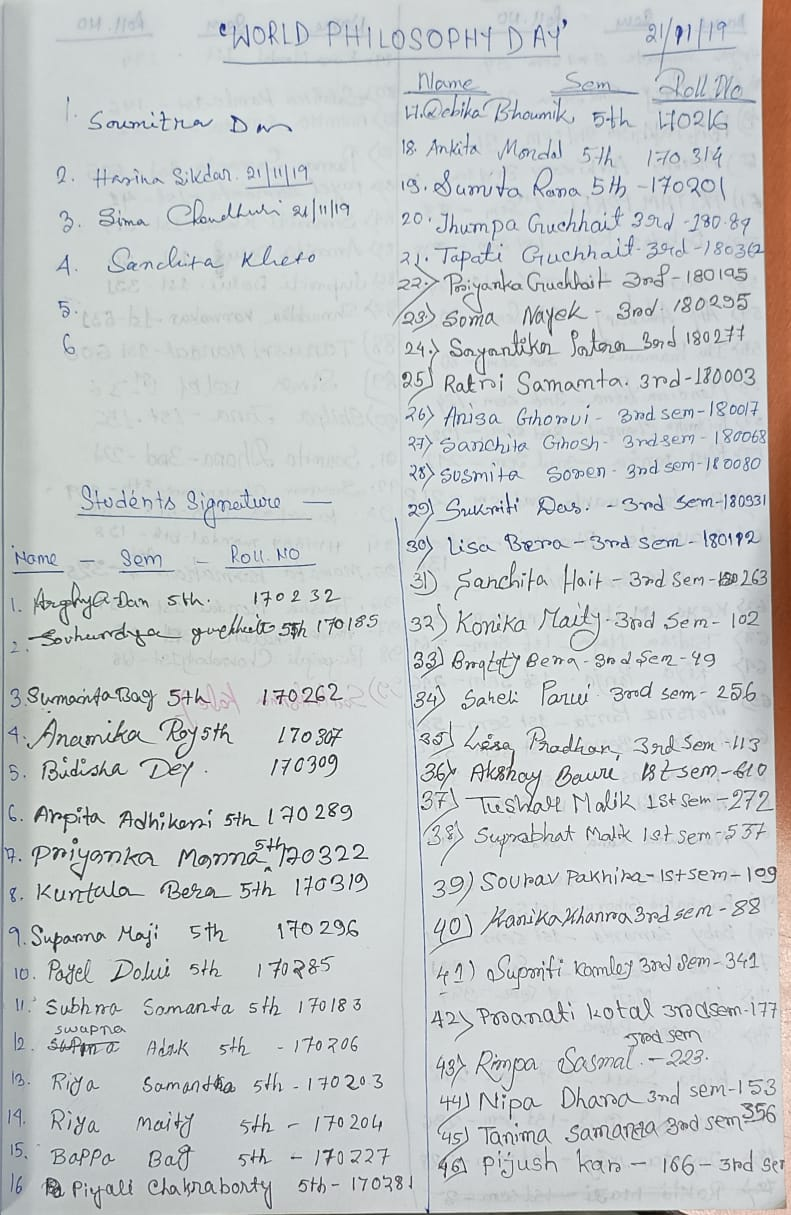 "WORLD PHILOSOPHY DAY" 21/11/19
1. Soumitra
2. Harina Sikdar. 21/11/19
3. Sima Choudhuri 21/11/19
4. Sanchita
5.
6
Students Signature —
Name - Sem - Roll. NO
1. Arghya Dan 5th. 170232
2. 5th 170185
3. Sumanta Bag 5th 170262
4. Anamika Roy 5th 170307
5. Bidisha Dey. 170309
6. Arpita Adhikari 5th 170289
7. Priyanka Manna 5th 170322
8. Kuntala Bera 5th 170319
9. Suparna Maji 5th 170296
10. Payel Dolui 5th 170285
11. Subhra Samanta 5th 170183
12. swapna Adak 5th - 170206
13. Riya Samanta 5th - 170203
14. Riya Maity 5th - 170204
15. Bappa Bag 5th - 170227
16 Piyali Chakraborty 5th - 170281
Name Sem Roll No
Bhoumik, 5th
18. Ankita Mondal 5th 170314
19. Sumita Rana 5th - 170201
20. Jhumpa Guchhait 3rd - 180.89
21. Tapati Guchhait - 3rd - 180362
22.) Priyanka Guchhait 3rd - 180195
23) Soma Nayek - 3rd 180295
24.) Sayantika 3rd 180277
25) Ratri Samanta. 3rd - 180003
26) Anisa - 3rd sem - 180017
27) Sanchita Ghosh - 3rd sem - 180068
28) Susmita Soren - 3rd sem - 180080
29) Sukriti Das. - 3rd Sem - 180331
30) Lisa Bera - 3rd Sem - 180192
31) Sanchita Hait - 3rd Sem - 263
32) Konika Maity - 3rd Sem - 102
33) Bera - 3rd Sem - 49
34) Saheli Parui 3rd sem - 256
35) Lisa Pradhan, 3rd Sem - 113
36) Akshay Bauri, 1st sem - 610
37) Tushar Malik 1st Sem - 272
38) Suprabhat Malik 1st sem - 557
39) Sourav Pakhira - 1st sem - 109
40) Kanika Khanra 3rd sem - 88
41) 3rd Sem - 341
42) Pranati Kotal 3rd sem - 177
43) Rimpa Sasmal. 3rd sem - 223.
44) Nipa Dhara 3rd sem - 153
45) Tanima Samanta 3rd sem 356
46) Pijush kar - 166 - 3rd Sem